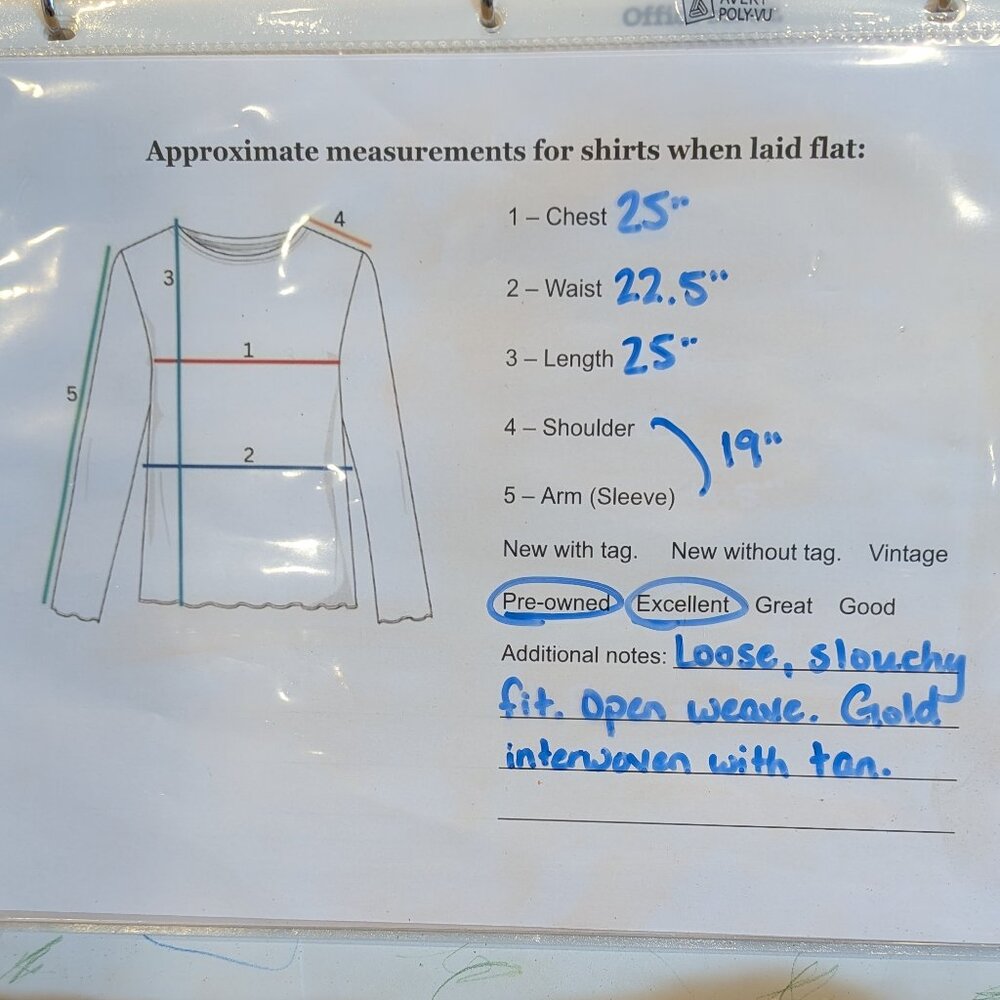 AVERY
POLY-VU
Approximate measurements for shirts when laid flat:
1 – Chest 25"
2 – Waist 22.5"
3 – Length 25"
4 – Shoulder
19"
5 – Arm (Sleeve)
New with tag. New without tag. Vintage
Pre-owned Excellent Great Good
Additional notes: Loose, slouchy
fit. Open weave. Gold
interwoven with tan.
4
3
1
5
2